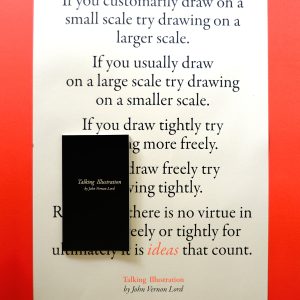 If you customarily draw on a
small scale try drawing on a
larger scale.
If you usually draw
on a large scale try drawing
on a smaller scale.
If you draw tightly try
more freely.
draw freely try
tightly.
there is no virtue in
or tightly for
it is ideas that count.
Talking Illustration
by John Vernon Lord
Talking Illustration
by John Vernon Lord